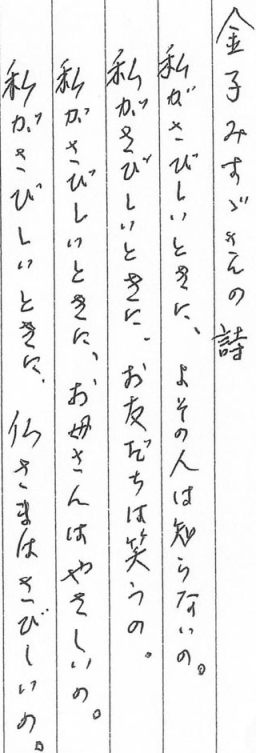 金子みすゞさんの詩
私がさびしいときに、よその人は知らないの。
私がさびしいときに、お友だちは笑うの。
私がさびしいときに、お母さんはやさしいの。
私がさびしいときに、仏さまはさびしいの。